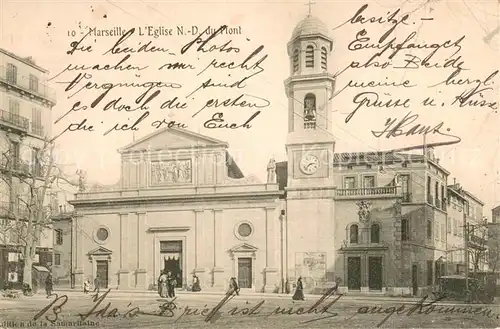 10 - Marseille - L'Eglise N.-D. du Mont
Die beiden Photos
machen mir recht
Vergnügen sind
es doch die ersten
die ich von Euch
besitze. -
Empfanget
also Beide
meine herzl.
Grüsse u. Küsse
Hans.
Brief ist noch nicht angekommen
Edition de la Samaritaine